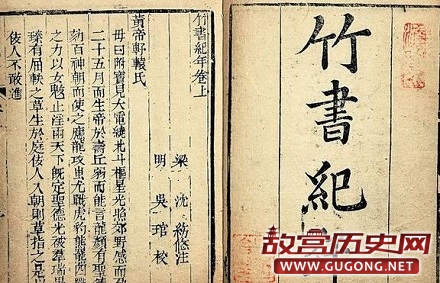 竹書紀
竹書紀年卷上
梁 沈約
明 吳琯校
黃帝軒轅氏
母曰附寶見大電繞北斗樞星光照郊野感而孕
二十五月而生帝於壽丘弱而能言龍顏有聖德
劾百神朝而使之應龍攻蚩尤戰虎豹熊羆四獸
之力以女魃止淫雨天下既定聖德光被羣瑞畢
臻有屈軼之草生於庭佞人入朝則草指之是以
佞人不敢進
故宫历史网
WWW.GUGONG.NET